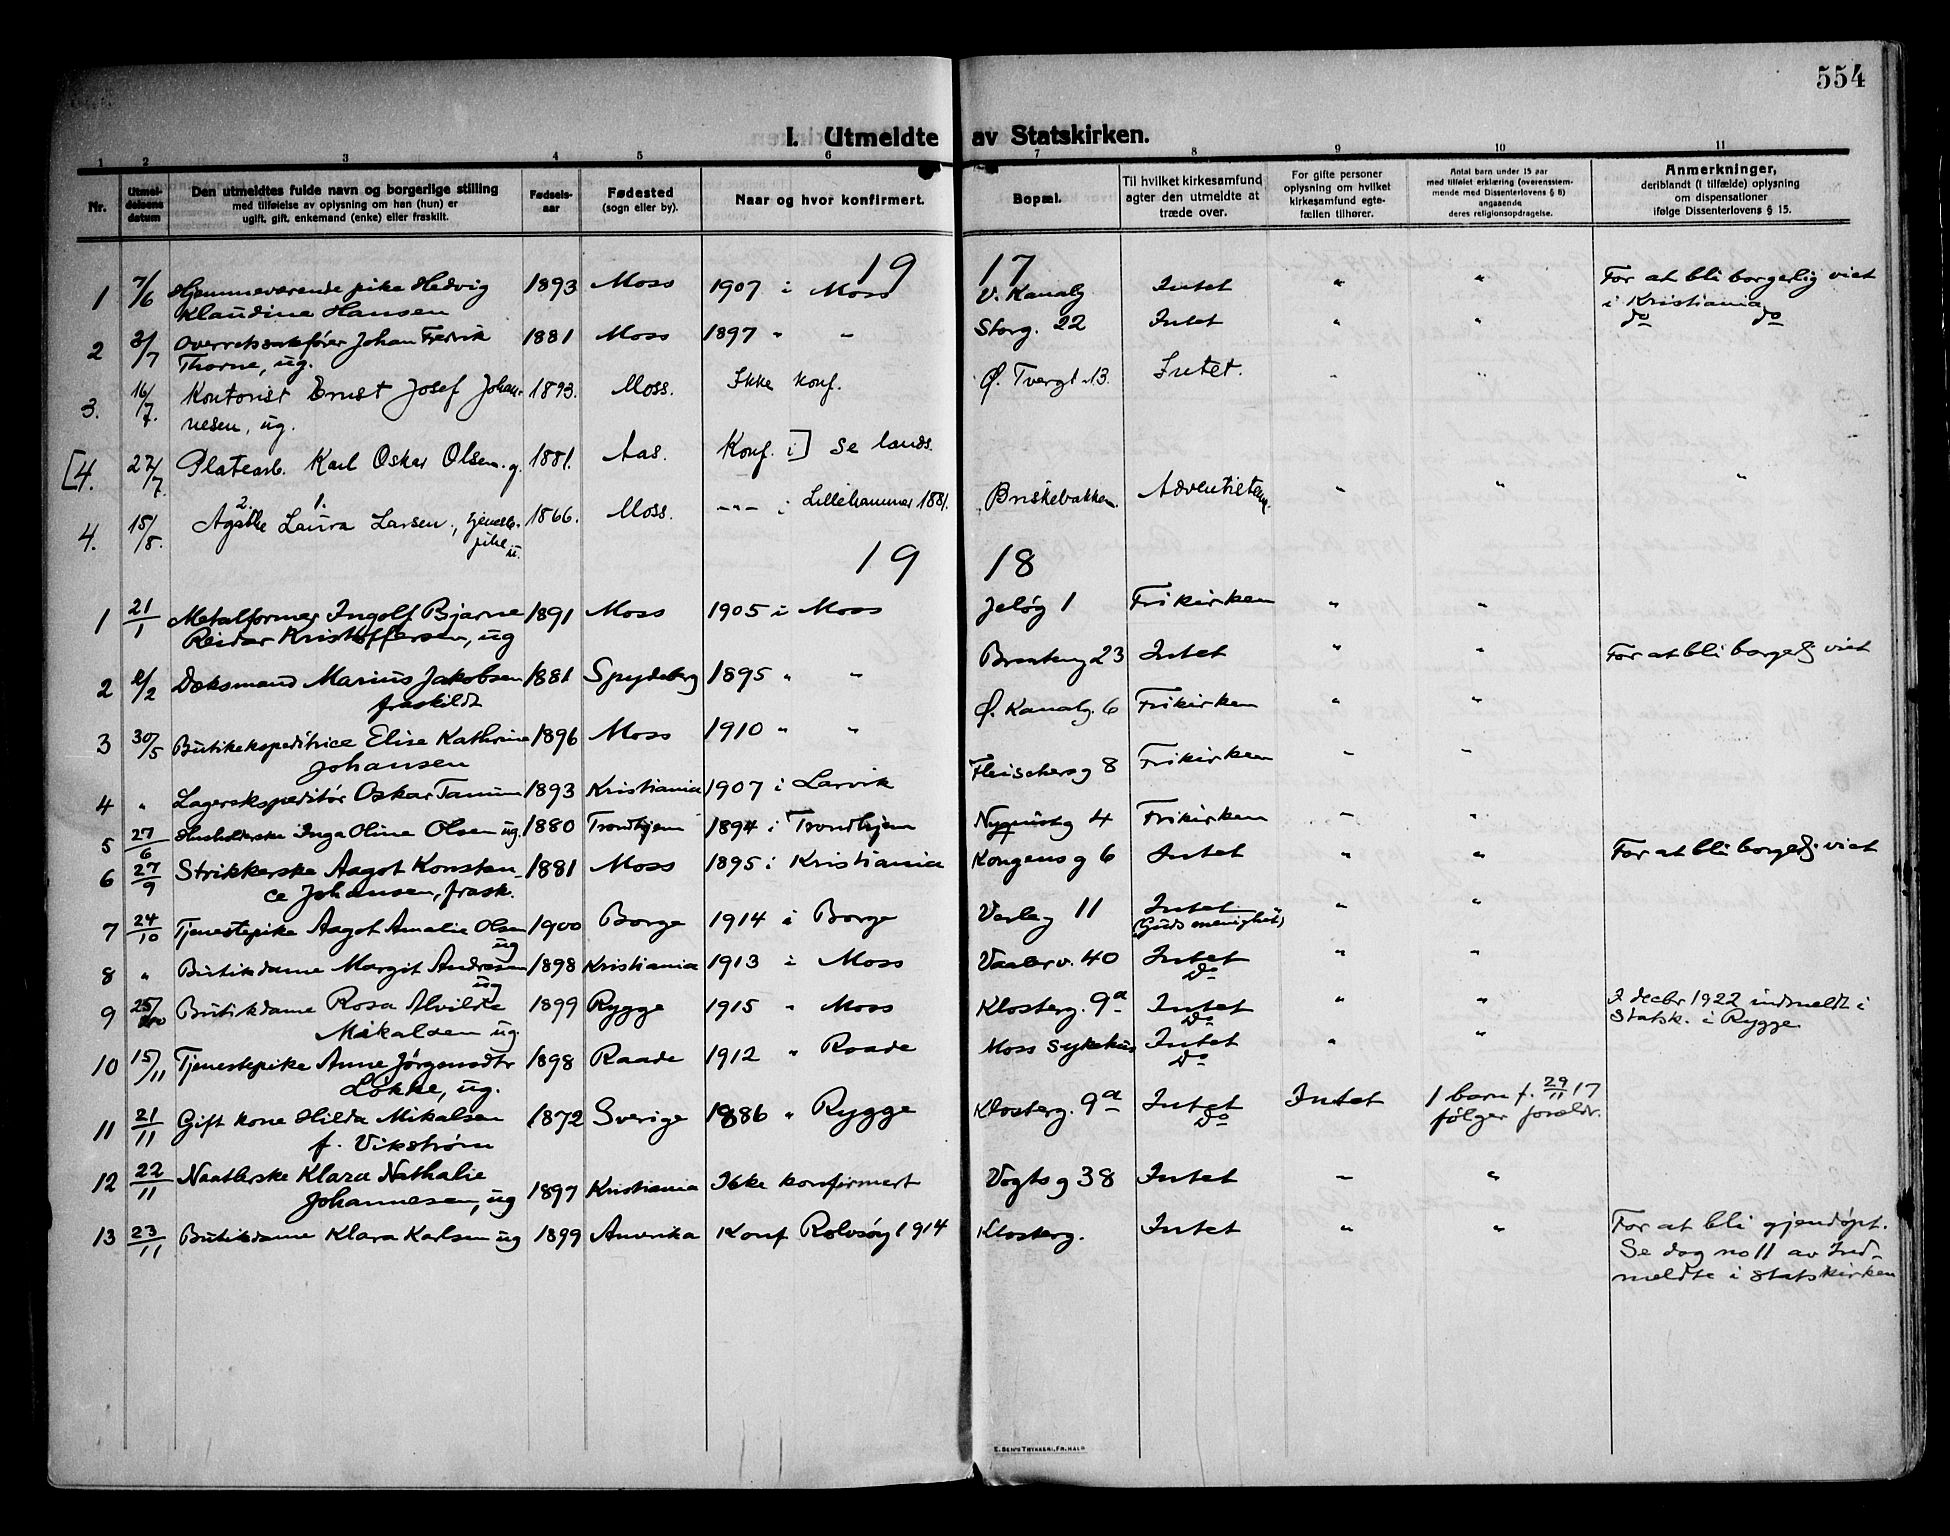 554
I. Utmeldte av Statskirken.
1 2 3 4 5 6 7 8 9 10 11
Nr.
Utmeldelsens datum
Den utmeldtes fulde navn og borgerlige stilling
med tilføielse av oplysning om han (hun) er
ugift, gift, enkemand (enke) eller fraskilt.
Fødselsaar
Fødested
(sogn eller by).
Naar og hvor konfirmert.
Bopæl.
Til hvilket kirkesamfund
agter den utmeldte at
træde over.
For gifte personer
oplysning om hvilket
kirkesamfund egte-
fællen tilhører.
Antal barn under 15 aar
med tilføiet erklæring (overensstem-
mende med Dissenterlovens § 8)
angaaende
deres religionsopdragelse.
Anmerkninger,
deriblandt (i tilfælde) oplysning
om dispensationer
ifølge Dissenterlovens § 15.
19 17
1 7/6 Hjemmeværende pike Hedvig 1893 Moss 1907 i Moss V. Kanalg Intet " " For at bli borgerlig viet
Klaudine Hansen i Kristiania
2 3/7 Overretssakfører Johan Fredrik 1881 Moss 1897 " - Storg. 22 Intet " " do do
Thorne, ug.
3. 16/7. Kontorist Ernst Josef Johan- 1893. Moss. Ikke konf. Ø. Tvergt. 13. Intet. " "
nesen, ug.
[4. 27/7. Platearb. Karl Oskar Olsen. g. 1881. Aas. Konf. i] Se lands.
2. 1.
4. 15/8. Agathe Laura Larsen., tjeneste- 1866. Moss. -"- i Lillehammer 1881. Briskebakken. Adventistene. " " "
pike u.
19 18
1 21/1 Metalformer Ingolf Bjarne 1891 Moss 1905 i Moss Jeløg 1 Frikirken " "
Reidar Kristoffersen, ug
2 2/2 Dæksmand Marius Jakobsen 1881 Spydeberg 1895 " " 23 Intet " " For at bli borgerlig viet
fraskildt
3 30/5 Butikekspeditrice Elise Kathrine 1896 Moss 1910 " " Ø. Kanalg. 6 Frikirken " "
Johansen
4 " Lagerekspeditør Oskar Tanum 1893 Kristiania 1907 i Larvik Fleischersg 8 Frikirken - -
5 27/6 Husholderske Inga Oline Olsen ug. 1880 Trondhjem 1894 i Trondhjem Nyquistg 4 Frikirken - "
6 27/9 Strikkerske Aagot Konstan- 1881 Moss 1895 i Kristiania Kongensg 6 Intet " " For at bli borgerlig viet
ce Johansen, frask.
7 24/10 Tjenestepike Aagot Amalie Olsen 1900 Borge 1914 i Borge Varleg 11 Intet " "
ug (Guds menighet)
8 " Butikdame Margit Andresen 1898 Kristiania 1913 i Moss Vaalerv. 40 Intet " "
ug Do
9 25/10 Butikdame Rosa Alvilde 1899 Rygge 1915 " Moss Klosterg. 9a Intet " " I decbr 1922 indmeldt i
Mikalsen ug. Do Statsk. i Rygge.
10 15/11 Tjenestepike Anne Jørgensdtr 1898 Raade 1912 " Raade Moss Sykehus Intet " "
Løkke, ug. Do
11 21/11 Gift kone Hilda Mikalsen 1872 Sverige 1886 " Rygge Klosterg. 9a Intet Intet 1 barn f. 29/11 17
f. Vikstrøm Do følger foreldr.
12 22/11 Naatlerske Klara Nathalie
Johannesen, ug 1897 Kristiania Ikke konfirmert Vogtsg 38 Intet - "
13 23/11 Butikdame Klara Karlsen ug 1899 Amerika Konf Rolvsøy 1914 Klosterg. Intet " " For at bli gjendøpt.
Se dog no 11 av Ind-
meldte i statskirken
E. SEM'S TRYKKERI, FR.HALD